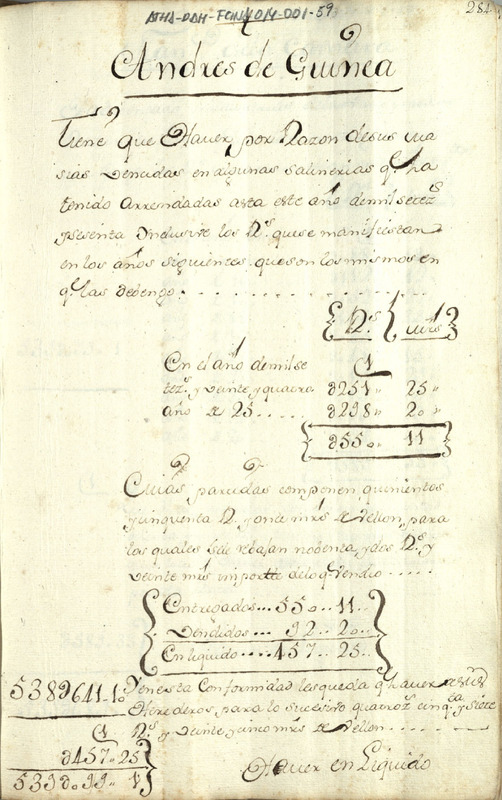 ATHA-DAH-FCINY014-001-59
284
Andres de Guinea
Tiene que Haver por Razon desus ma
sias vencidas en algunas salinerias q.e ha
tenido Arrendadas asta este año demil setez.s
ysesenta Inclusive los R.s quese manifiestan
en los años siguientes. queson los mismos en
q.e las devengo. . . . . . . . . . . .
R.s mrs
En el año demil se
tez.s y veinte y quatro 251 25
año de 25 . . . . . 298 20
550 11
Cuias partidas componen quinientos
y cinquenta R.s y onze mrs de vellon, para
las quales sele rebajan nobenta y dos R.s y
veinte mrs importte delo q.e vendio . . . . .
Entregados . . . 550 . . 11 . .
Vendidos . . . 92 . . 20 . .
En liquido . . . . 457 . . 25 . .
538 641 Yen esta Conformidad lesqueda q.e haver
Herederos, para lo sucesivo quatroz.s cinq.ta y siete
R.s y veinte y cinco mrs de vellon . . . . .
457 25 Haver en Liquido